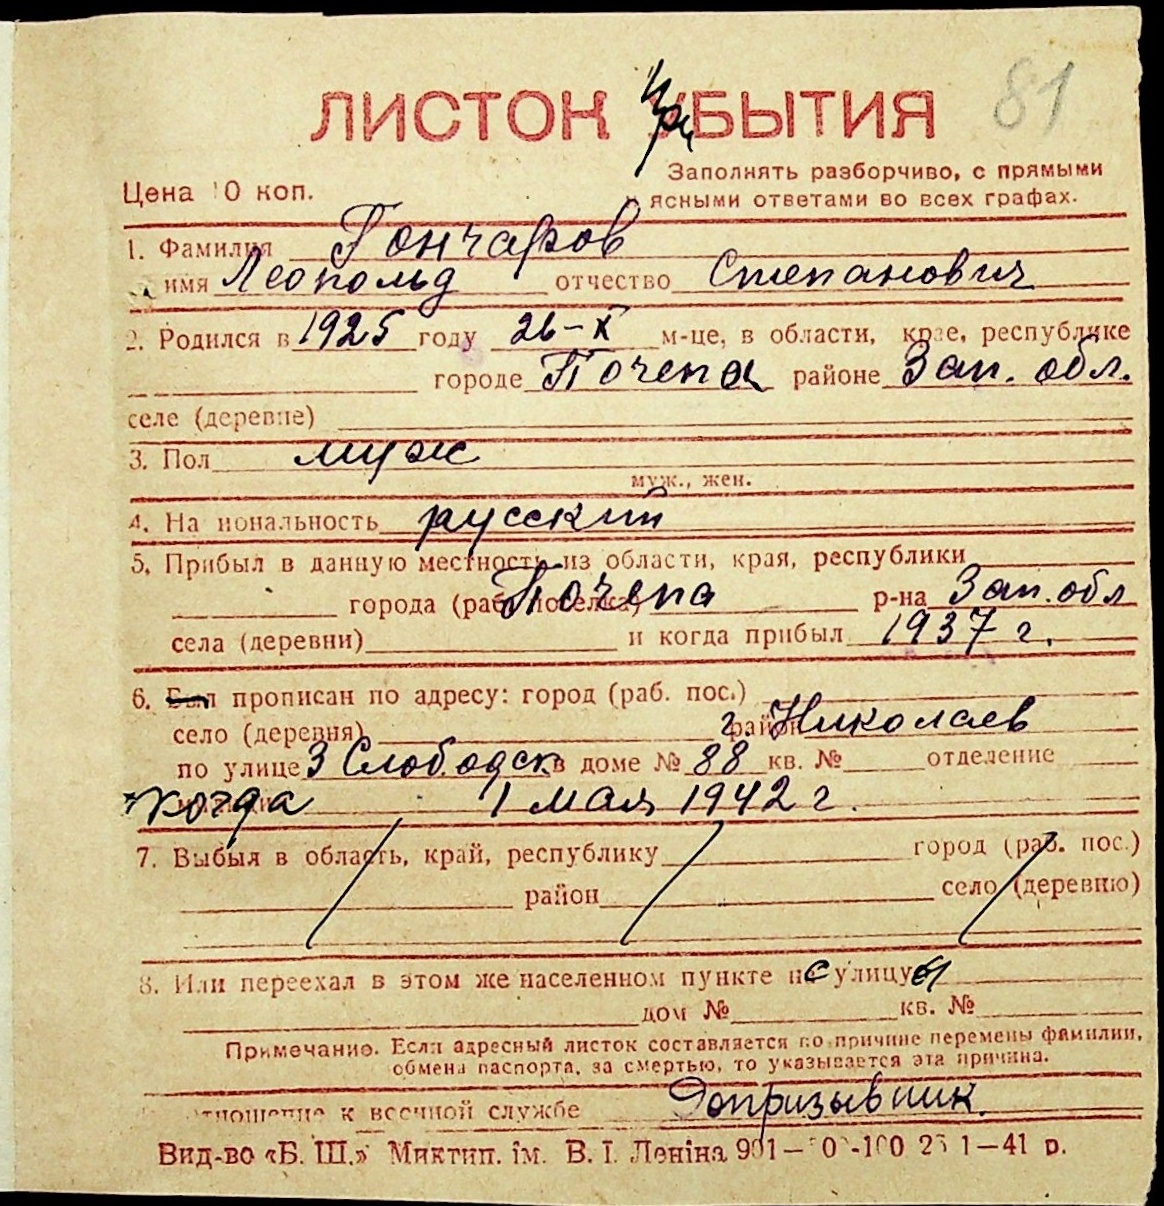 81
ЛИСТОК ПриБЫТИЯ
Заполнять разборчиво, с прямыми
Цена 10 коп.
и ясными ответами во всех графах.
1. Фамилия Гончаров
имя Леопольд отчество Степанович
2. Родился в 1925 году 26-X м-це, в области, крае, республике
городе Почепа районе Зап. обл.
селе (деревне)
3. Пол муж
муж., жен.
4. Национальность русский
5. Прибыл в данную местность из области, края, республики
города (раб. поселка) Почепа р-на Зап. обл
села (деревни) и когда прибыл 1937 г.
6. Был прописан по адресу: город (раб. пос.)
село (деревня) район г. Николаев
по улице 3 Слободск в доме № 88 кв. № отделение
когда 1 мая 1942 г.
7. Выбыл в область, край, республику город (раб. пос.)
район село (деревню)
8. Или переехал в этом же населенном пункте с улицы
дом № кв. №
Примечание. Если адресный листок составляется по причине перемены фамилии,
обмена паспорта, за смертью, то указывается эта причина.
отношение к военной службе Допризывник.
Вид-во «Б. Ш.» Миктип. ім. В. І. Леніна 1—41 р.